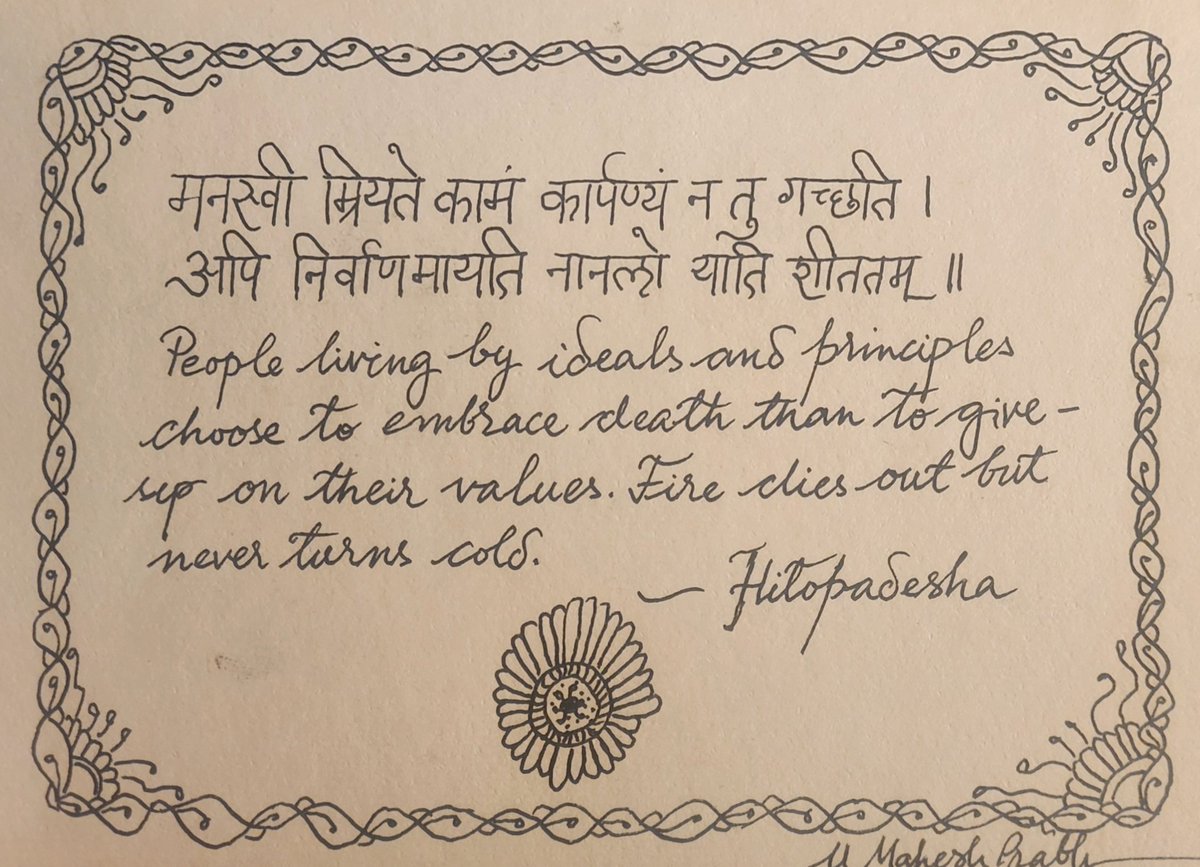 मनस्वी म्रियते कामं कार्पण्यं न तु गच्छति ।
अपि निर्वाणमायाति नानलो याति शीततम् ॥
People living by ideals and principles
choose to embrace death than to give-
up on their values. Fire dies out but
never turns cold.
— Hitopadesha
U Mahesh Prabhu